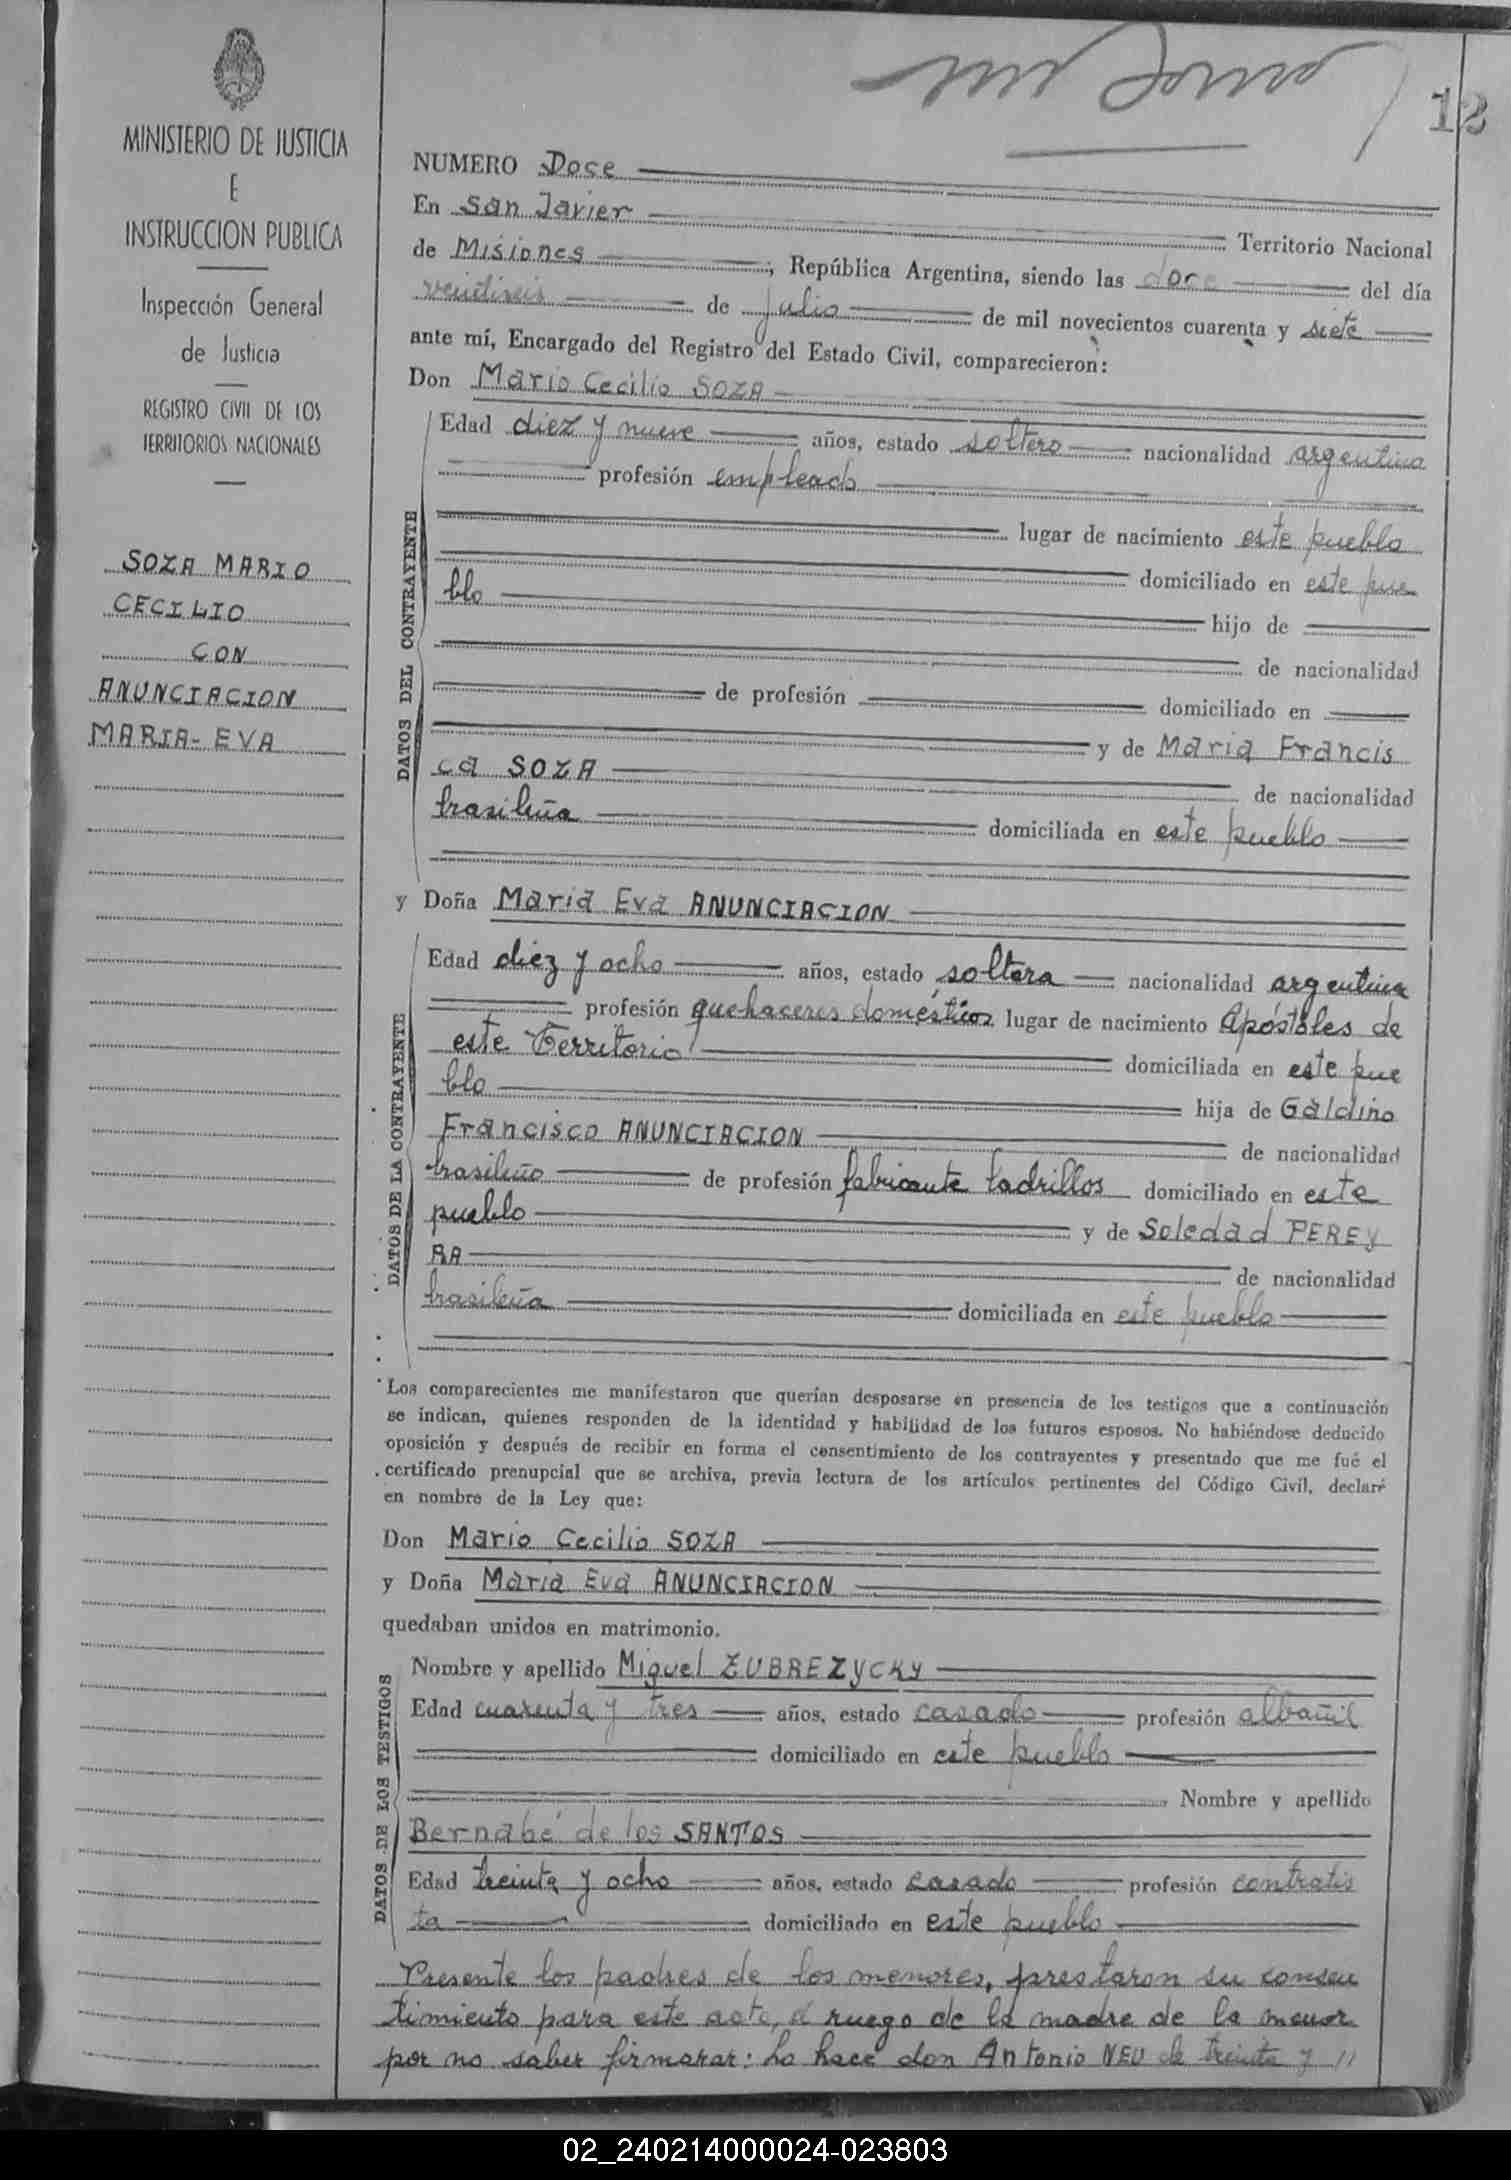 12
MINISTERIO DE JUSTICIA
E
INSTRUCCION PUBLICA
Inspección General
de Justicia
REGISTRO CIVIL DE LOS
TERRITORIOS NACIONALES
SOZA MARIO
CECILIO
CON
ANUNCIACION
MARIA-EVA
NUMERO Doce
En San Javier Territorio Nacional
de Misiones, República Argentina, siendo las doce del día
veintiseis de julio de mil novecientos cuarenta y siete
ante mí, Encargado del Registro del Estado Civil, comparecieron:
Don Mario Cecilio SOZA
DATOS DEL CONTRAYENTE
Edad diez y nueve años, estado soltero nacionalidad argentina
profesión empleado
lugar de nacimiento este pueblo
domiciliado en este pue
blo hijo de
de nacionalidad
de profesión domiciliado en
y de Maria Francis
ca SOZA de nacionalidad
brasileña domiciliada en este pueblo
y Doña Maria Eva ANUNCIACION
DATOS DE LA CONTRAYENTE
Edad diez y ocho años, estado soltera nacionalidad argentina
profesión quehaceres domésticos lugar de nacimiento Apóstoles de
este Territorio domiciliada en este pue
blo hija de Galdino
Francisco ANUNCIACION de nacionalidad
brasileño de profesión fabricante ladrillos domiciliado en este
pueblo y de Soledad PEREY
RA de nacionalidad
brasileña domiciliada en este pueblo
Los comparecientes me manifestaron que querían desposarse en presencia de los testigos que a continuación
se indican, quienes responden de la identidad y habilidad de los futuros esposos. No habiéndose deducido
oposición y después de recibir en forma el consentimiento de los contrayentes y presentado que me fué el
certificado prenupcial que se archiva, previa lectura de los artículos pertinentes del Código Civil, declaré
en nombre de la Ley que:
Don Mario Cecilio SOZA
y Doña Maria Eva ANUNCIACION
quedaban unidos en matrimonio.
DATOS DE LOS TESTIGOS
Nombre y apellido Miguel ZUBREZYCKY
Edad cuarenta y tres años, estado casado profesión albañil
domiciliado en este pueblo
Nombre y apellido
Bernabé de los SANTOS
Edad treinta y ocho años, estado casado profesión contratis
ta domiciliado en este pueblo
Presente los padres de los menores, prestaron su consen
timiento para este acto, a ruego de la madre de la menor
por no saber firmarar: Lo hace don Antonio NEU de treinta y //
02_240214000024-023803